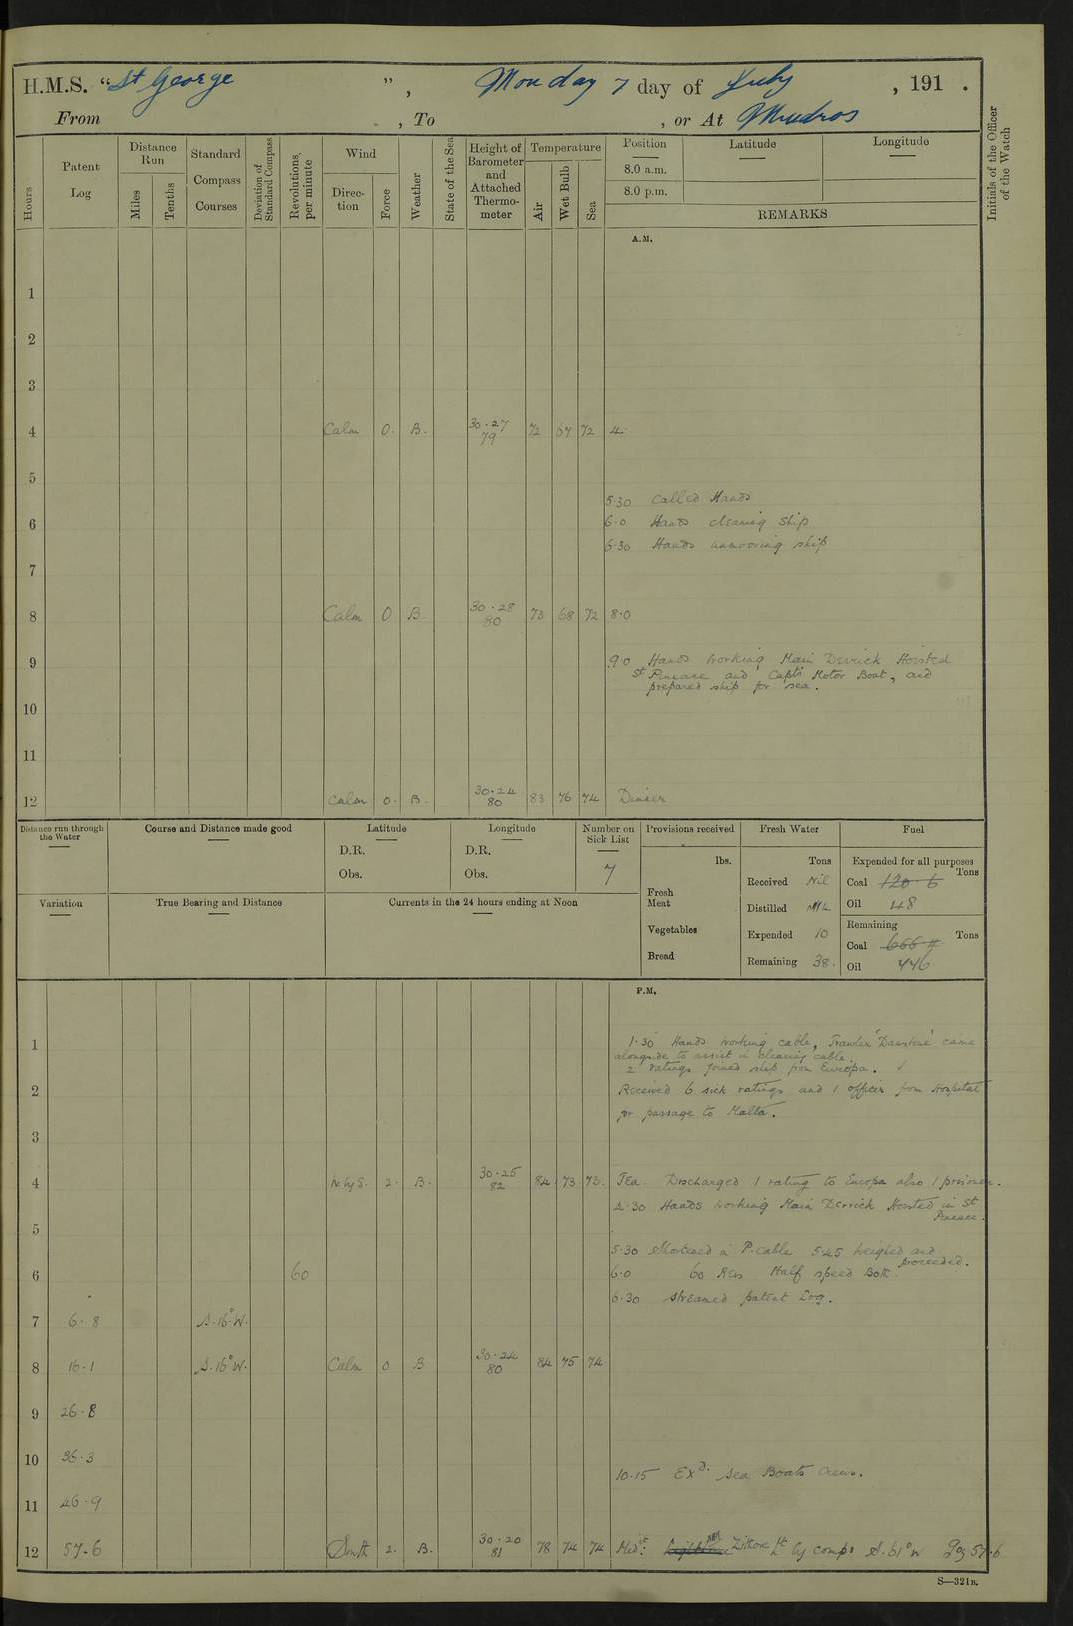 H.M.S. "St George", Monday 7 day of July, 191 .
From , To , or At Mudros
Hours
Patent Log
Distance Run
Miles
Tenths
Standard Compass Courses
Deviation of Standard Compass
Revolutions per minute
Wind
Direction
Force
Weather
State of the Sea
Height of Barometer and Attached Thermometer
Temperature
Air
Wet Bulb
Sea
Position
8.0 a.m.
8.0 p.m.
Latitude
Longitude
REMARKS
Initials of the Officer of the Watch
A.M.
1
2
3
4 Calm 0. B. 30.27 79 72 67 72 4.
5
5.30 Called Hands
6 6.0 Hands cleaning ship
6.30 Hands unmooring ship
7
8 Calm 0 B. 30.28 80 73 68 72 8.0
9 9.0 Hands working Main Derrick Hoisted
St Pinnace and Capts Motor Boat, and
prepared ship for sea.
10
11
12 Calm 0. B. 30.24 80 83 76 74 Dinner
Distance run through the Water
Course and Distance made good
Latitude
D.R.
Obs.
Longitude
D.R.
Obs.
Number on Sick List
7
Provisions received
lbs.
Fresh Meat
Vegetables
Bread
Fresh Water
Tons
Received Nil
Distilled Nil
Expended 10
Remaining 38.
Fuel
Expended for all purposes
Tons
Coal 120.6
Oil 48
Remaining
Tons
Coal
Oil 446
Variation
True Bearing and Distance
Currents in the 24 hours ending at Noon
P.M.
1 1.30 Hands working cable, Trawler came
alongside to assist in clearing cable.
2 ratings joined ship from Europa.
2 Received 6 sick ratings and 1 officer from Hospital
for passage to Malta.
3
4 W. by S. 2. B. 30.25 82 84 73 73. Tea. Discharged 1 rating to Europa also 1 prisoner.
4.30 Hands working Main Derrick Hoisted in St
Pinnace.
5
5.30 Shortened in P. cable 5.45 weighed and
proceeded.
6 60 6.0 60 Revs Half speed Both
6.30 Streamed patent Log.
7 6.8 S.16°W.
8 16.1 S.16°W. Calm 0 B 30.24 80 84 75 74
9 26.8
10 36.3
10.15 Exd. Sea Boats Crews.
11 46.9
12 57.6 South 2. B. 30.20 81 78 74 74 Midt: Lt by comps S.61°W Log 57.6
S—321B.